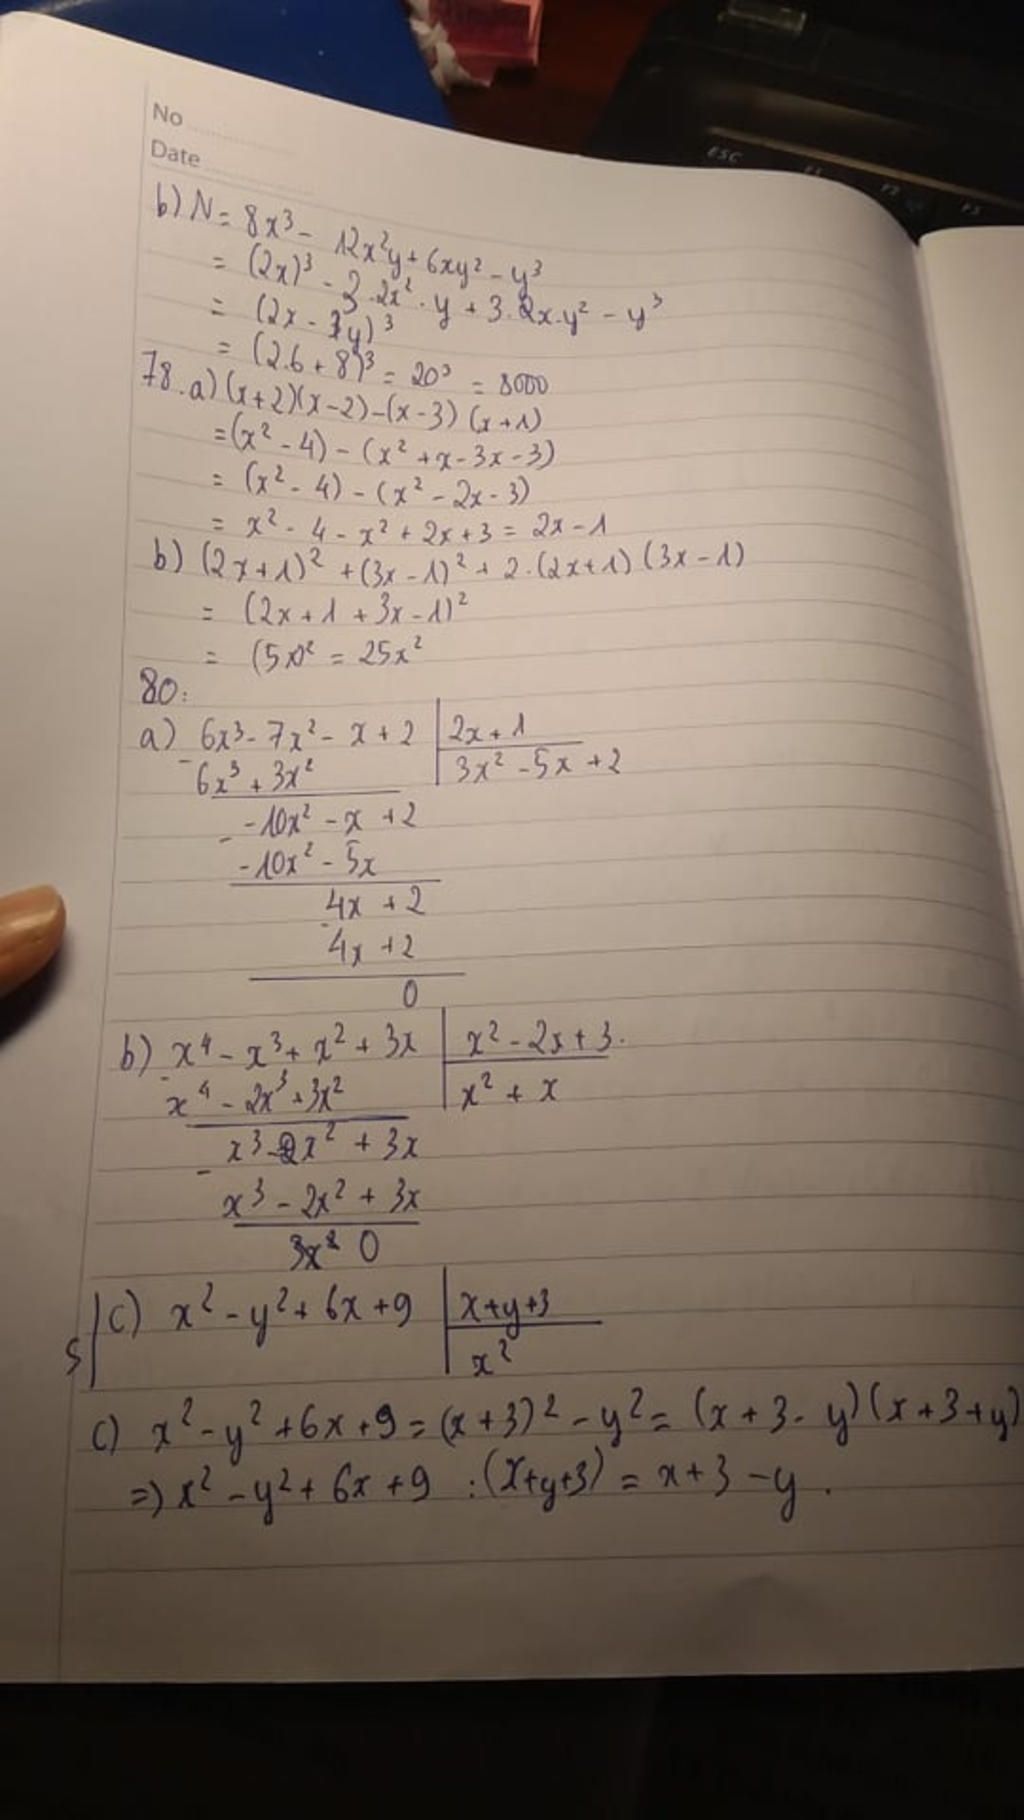 No
Date
b) N = 8x³ - 12x²y + 6xy² - y³
= (2x)³ - 3.2x².y + 3.2x.y² - y³
= (2x - y)³
= (2.6 + 8)³ = 20³ = 8000
78.a) (x+2)(x-2)-(x-3)(x+1)
= (x² - 4) - (x² + x - 3x - 3)
= (x² - 4) - (x² - 2x - 3)
= x² - 4 - x² + 2x + 3 = 2x - 1
b) (2x+1)² + (3x-1)² + 2.(2x+1)(3x-1)
= (2x + 1 + 3x - 1)²
= (5x)² = 25x²
80:
a) 6x³ - 7x² - x + 2 | 2x + 1
- 6x³ + 3x² | 3x² - 5x + 2
-10x² - x + 2
- -10x² - 5x
4x + 2
- 4x + 2
0
b) x⁴ - x³ + x² + 3x | x² - 2x + 3.
- x⁴ - 2x³ + 3x² | x² + x
x³ - 2x² + 3x
- x³ - 2x² + 3x
0
S | c) x² - y² + 6x + 9 | x+y+3
x²
c) x² - y² + 6x + 9 = (x+3)² - y² = (x+3-y)(x+3+y)
=> x² - y² + 6x + 9 : (x+y+3) = x + 3 - y.
ESC
F1
F2
F3